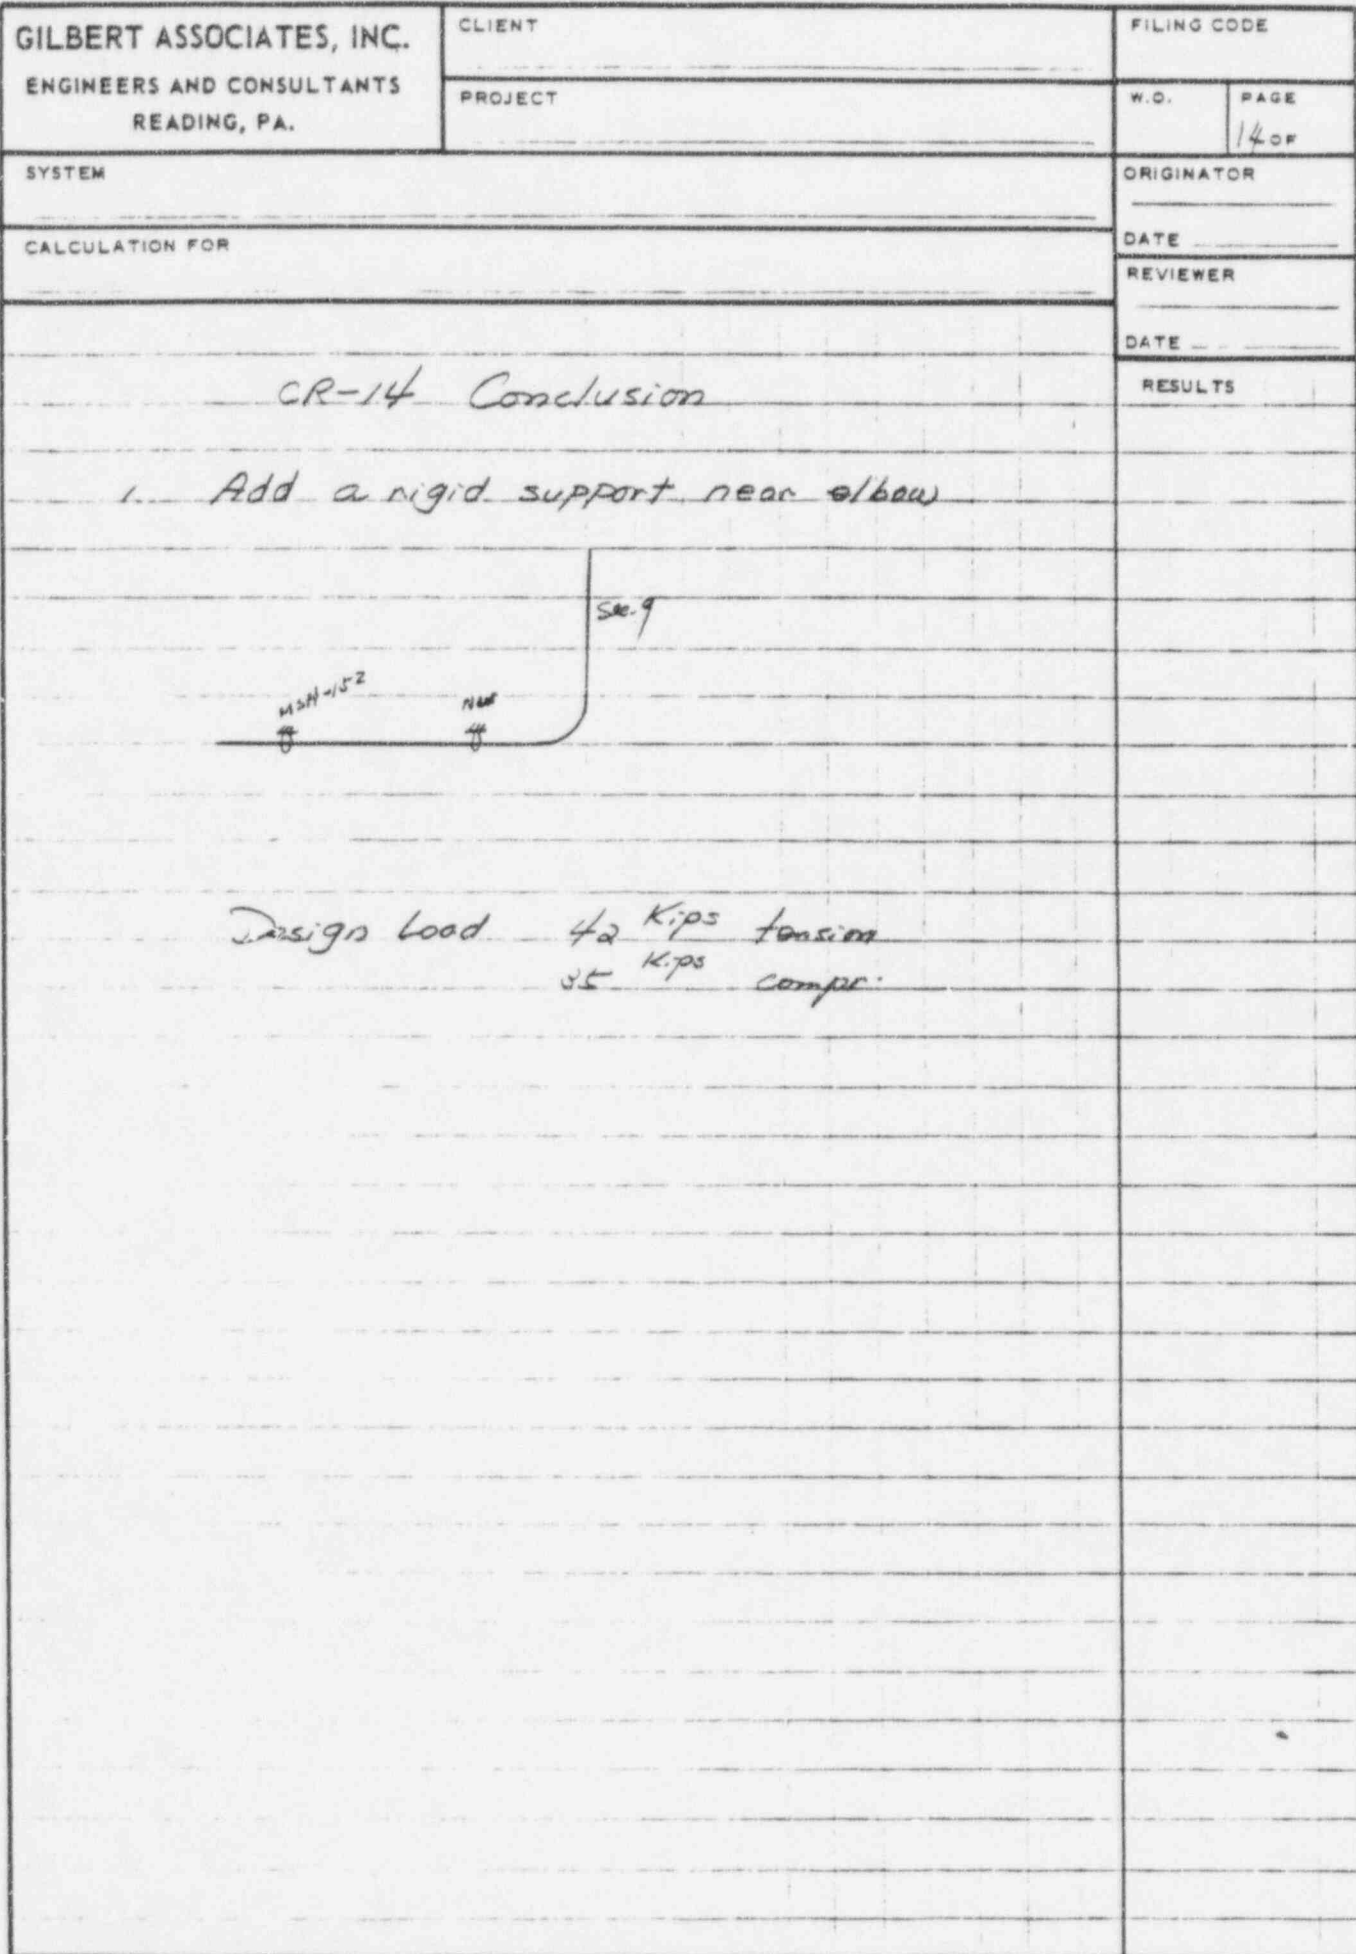 GILBERT ASSOCIATES, INC.
ENGINEERS AND CONSULTANTS
READING, PA.
CLIENT
PROJECT
FILING CODE
W.O.
PAGE
14 OF
SYSTEM
CALCULATION FOR
ORIGINATOR
DATE
REVIEWER
DATE
RESULTS
CR-14 Conclusion
1. Add a rigid support near elbow
Sec. 9
MSH-152
New
Design Load 42 Kips tension
35 Kips compr.